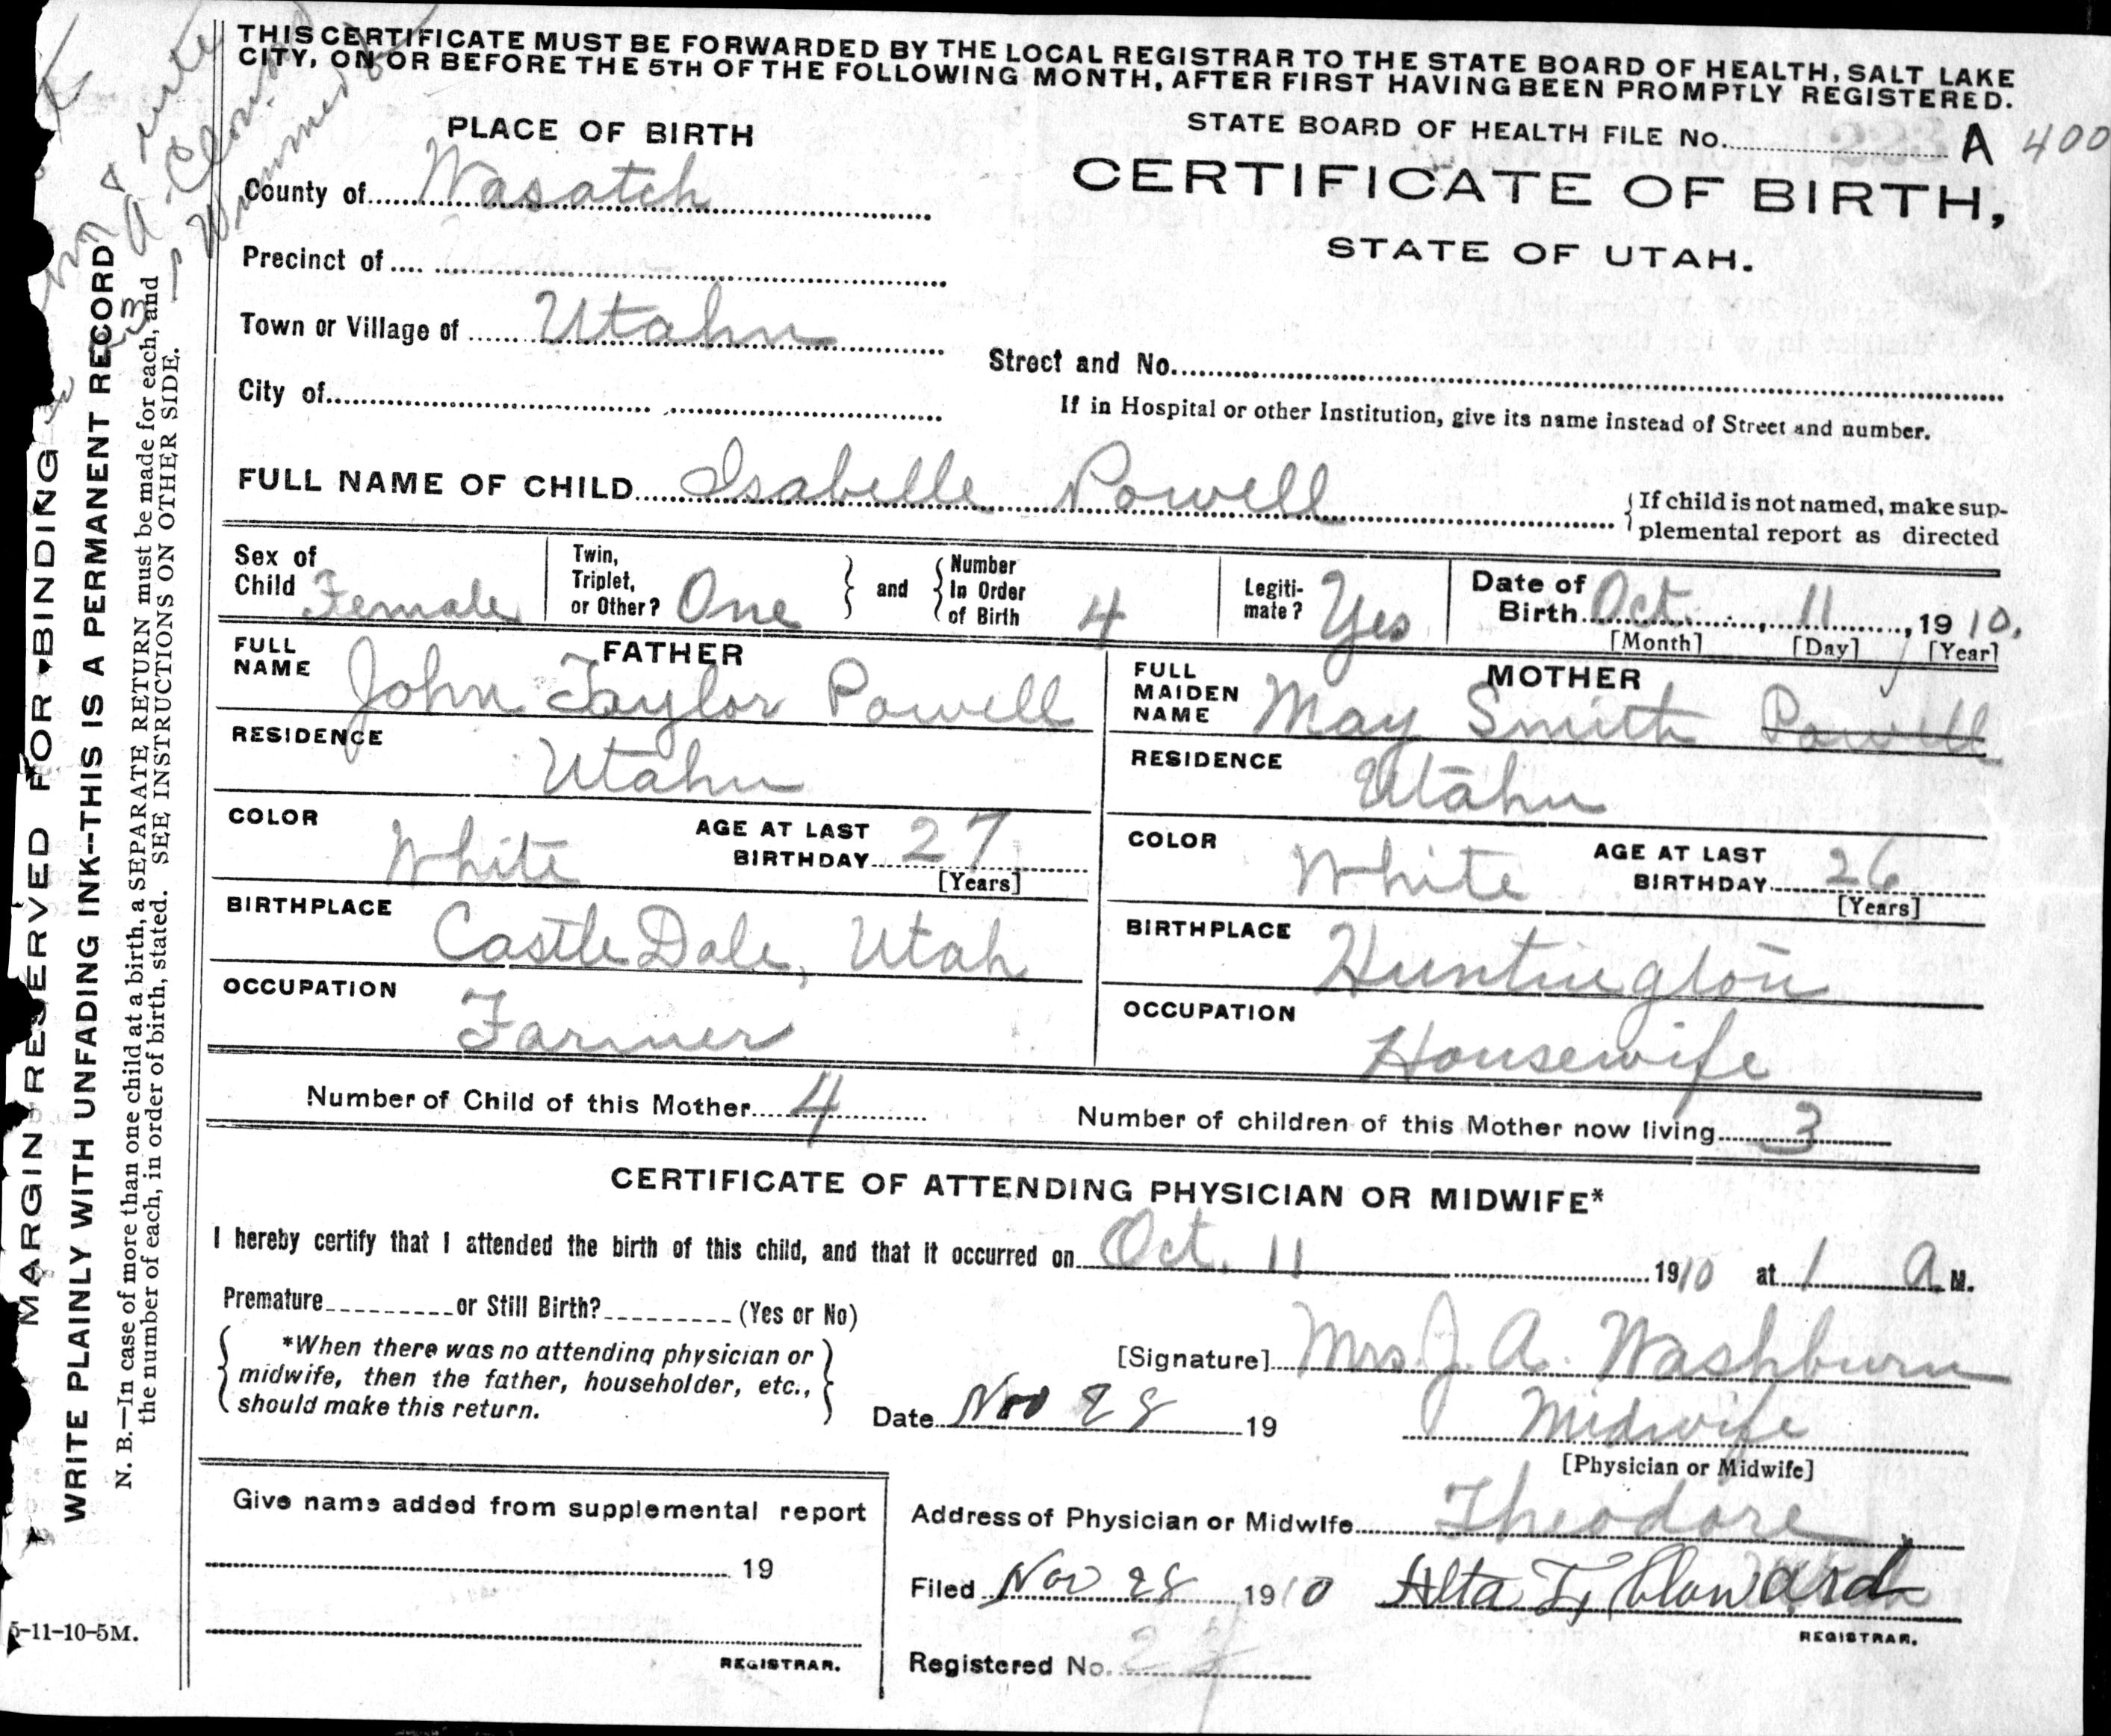 THIS CERTIFICATE MUST BE FORWARDED BY THE LOCAL REGISTRAR TO THE STATE BOARD OF HEALTH, SALT LAKE
CITY, ON OR BEFORE THE 5TH OF THE FOLLOWING MONTH, AFTER FIRST HAVING BEEN PROMPTLY REGISTERED.
PLACE OF BIRTH
County of Wasatch
Precinct of
Town or Village of Utahn
City of
STATE BOARD OF HEALTH FILE No. A 400
CERTIFICATE OF BIRTH,
STATE OF UTAH.
Street and No.
If in Hospital or other Institution, give its name instead of Street and number.
FULL NAME OF CHILD Isabelle Powell
If child is not named, make sup-
plemental report as directed
Sex of
Child Female
Twin,
Triplet,
or Other? One
and
Number
In Order
of Birth 4
Legiti-
mate? Yes
Date of
Birth Oct. 11, 1910.
[Month] [Day] [Year]
FATHER
FULL
NAME John Taylor Powell
RESIDENCE
Utahn
COLOR White
AGE AT LAST
BIRTHDAY 27
[Years]
BIRTHPLACE
Castle Dale, Utah
OCCUPATION
Farmer
MOTHER
FULL
MAIDEN
NAME May Smith Powell
RESIDENCE
Utahn
COLOR White
AGE AT LAST
BIRTHDAY 26
[Years]
BIRTHPLACE
Huntington
OCCUPATION
Housewife
Number of Child of this Mother 4
Number of children of this Mother now living 3
CERTIFICATE OF ATTENDING PHYSICIAN OR MIDWIFE*
I hereby certify that I attended the birth of this child, and that it occurred on Oct. 11 1910 at 1 A M.
Premature or Still Birth? (Yes or No)
*When there was no attending physician or
midwife, then the father, householder, etc.,
should make this return.
[Signature] Mrs. J. A. Washburn
Date Nov 28 19
Midwife
[Physician or Midwife]
Give name added from supplemental report
19
REGISTRAR.
Address of Physician or Midwife Theodore
Filed Nov 28 1910 Alta
REGISTRAR.
Registered No.
MARGIN RESERVED FOR BINDING
WRITE PLAINLY WITH UNFADING INK--THIS IS A PERMANENT RECORD
N. B.—In case of more than one child at a birth, a SEPARATE RETURN must be made for each, and
the number of each, in order of birth, stated. SEE INSTRUCTIONS ON OTHER SIDE.
5-11-10-5M.